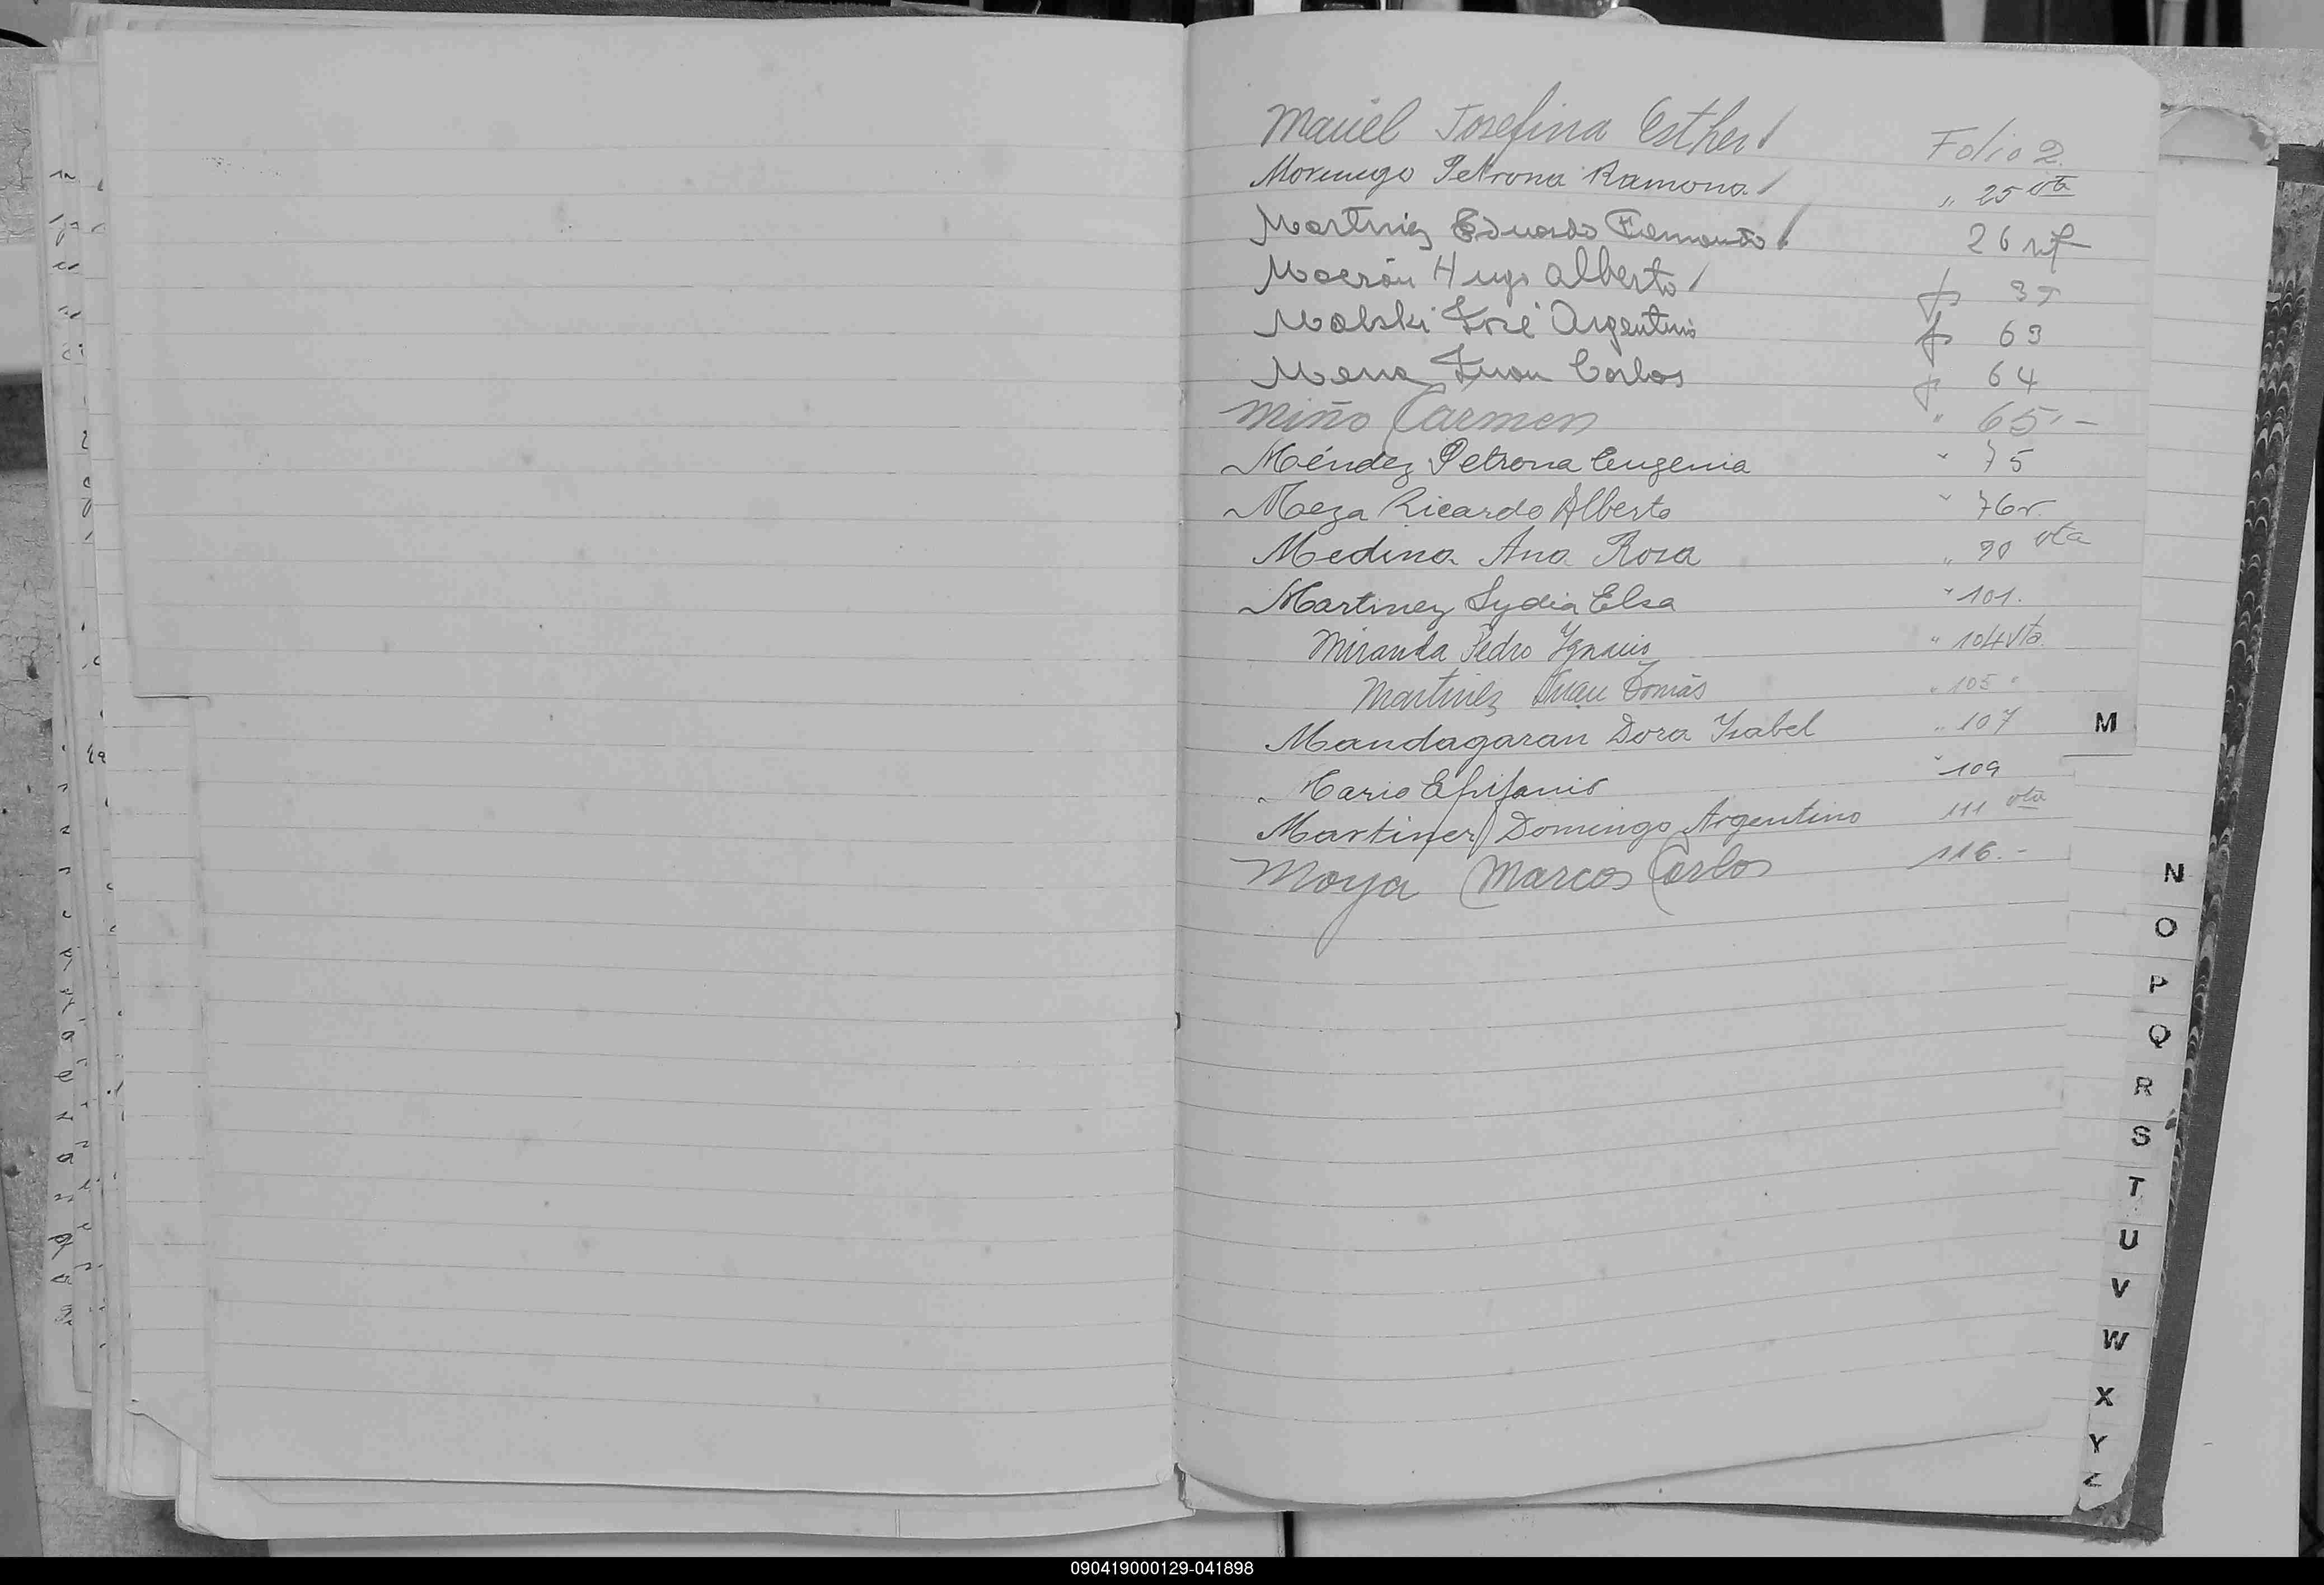 Maciel Josefina Esther / Folio 2.
Petrona Ramona / " 25 vta
Martinez Eduardo Fernando / 26
Hugo Alberto / fs 37
Malski José Argentino fs 63
Mena Juan Carlos fs 64
Miño Carmen " 65.-
Méndez Petrona Eugenia " 75
Meza Ricardo Alberto " 76 v.
Medina Ana Rosa " 90 vta
Martinez Lydia Elsa " 101.
Miranda Pedro Ygnacio " 104 vta.
Martinez Juan Tomás " 105 "
Mandagaran Dora Ysabel " 107
M
Mario Epifanio " 109
Martinez Domingo Argentino 111 vta
Moya Marcos Carlos 116.-
N
O
P
Q
R
S
T
U
V
W
X
Y
Z
090419000129-041898